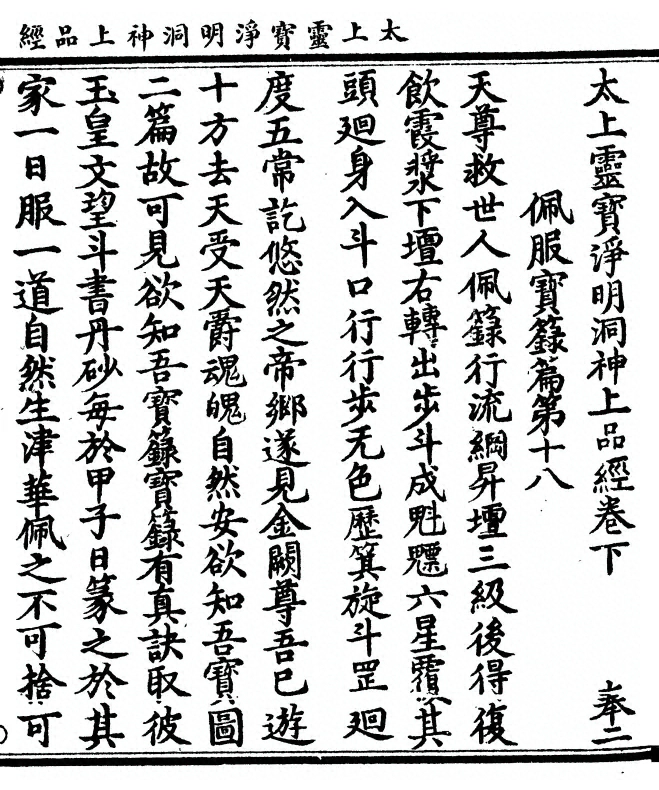 太上靈寶淨明洞神上品經
太上靈寶淨明洞神上品經卷下 奉二
佩服寶籙篇第十八
天尊救世人佩籙行流綱昇壇三級後得復
飲霞漿下壇右轉出步斗成魁魒六星覆其
頭廻身入斗口行行步无色歷箕旋斗罡廻
度五常訖悠然之帝鄉遂見金闕尊吾已遊
十方去天受天爵魂魄自然安欲知吾寶圖
二篇故可見欲知吾寶籙寶籙有真訣取彼
玉皇文朢斗書丹砂每於甲子日篆之於其
家一日服一道自然生津華佩之不可捨可